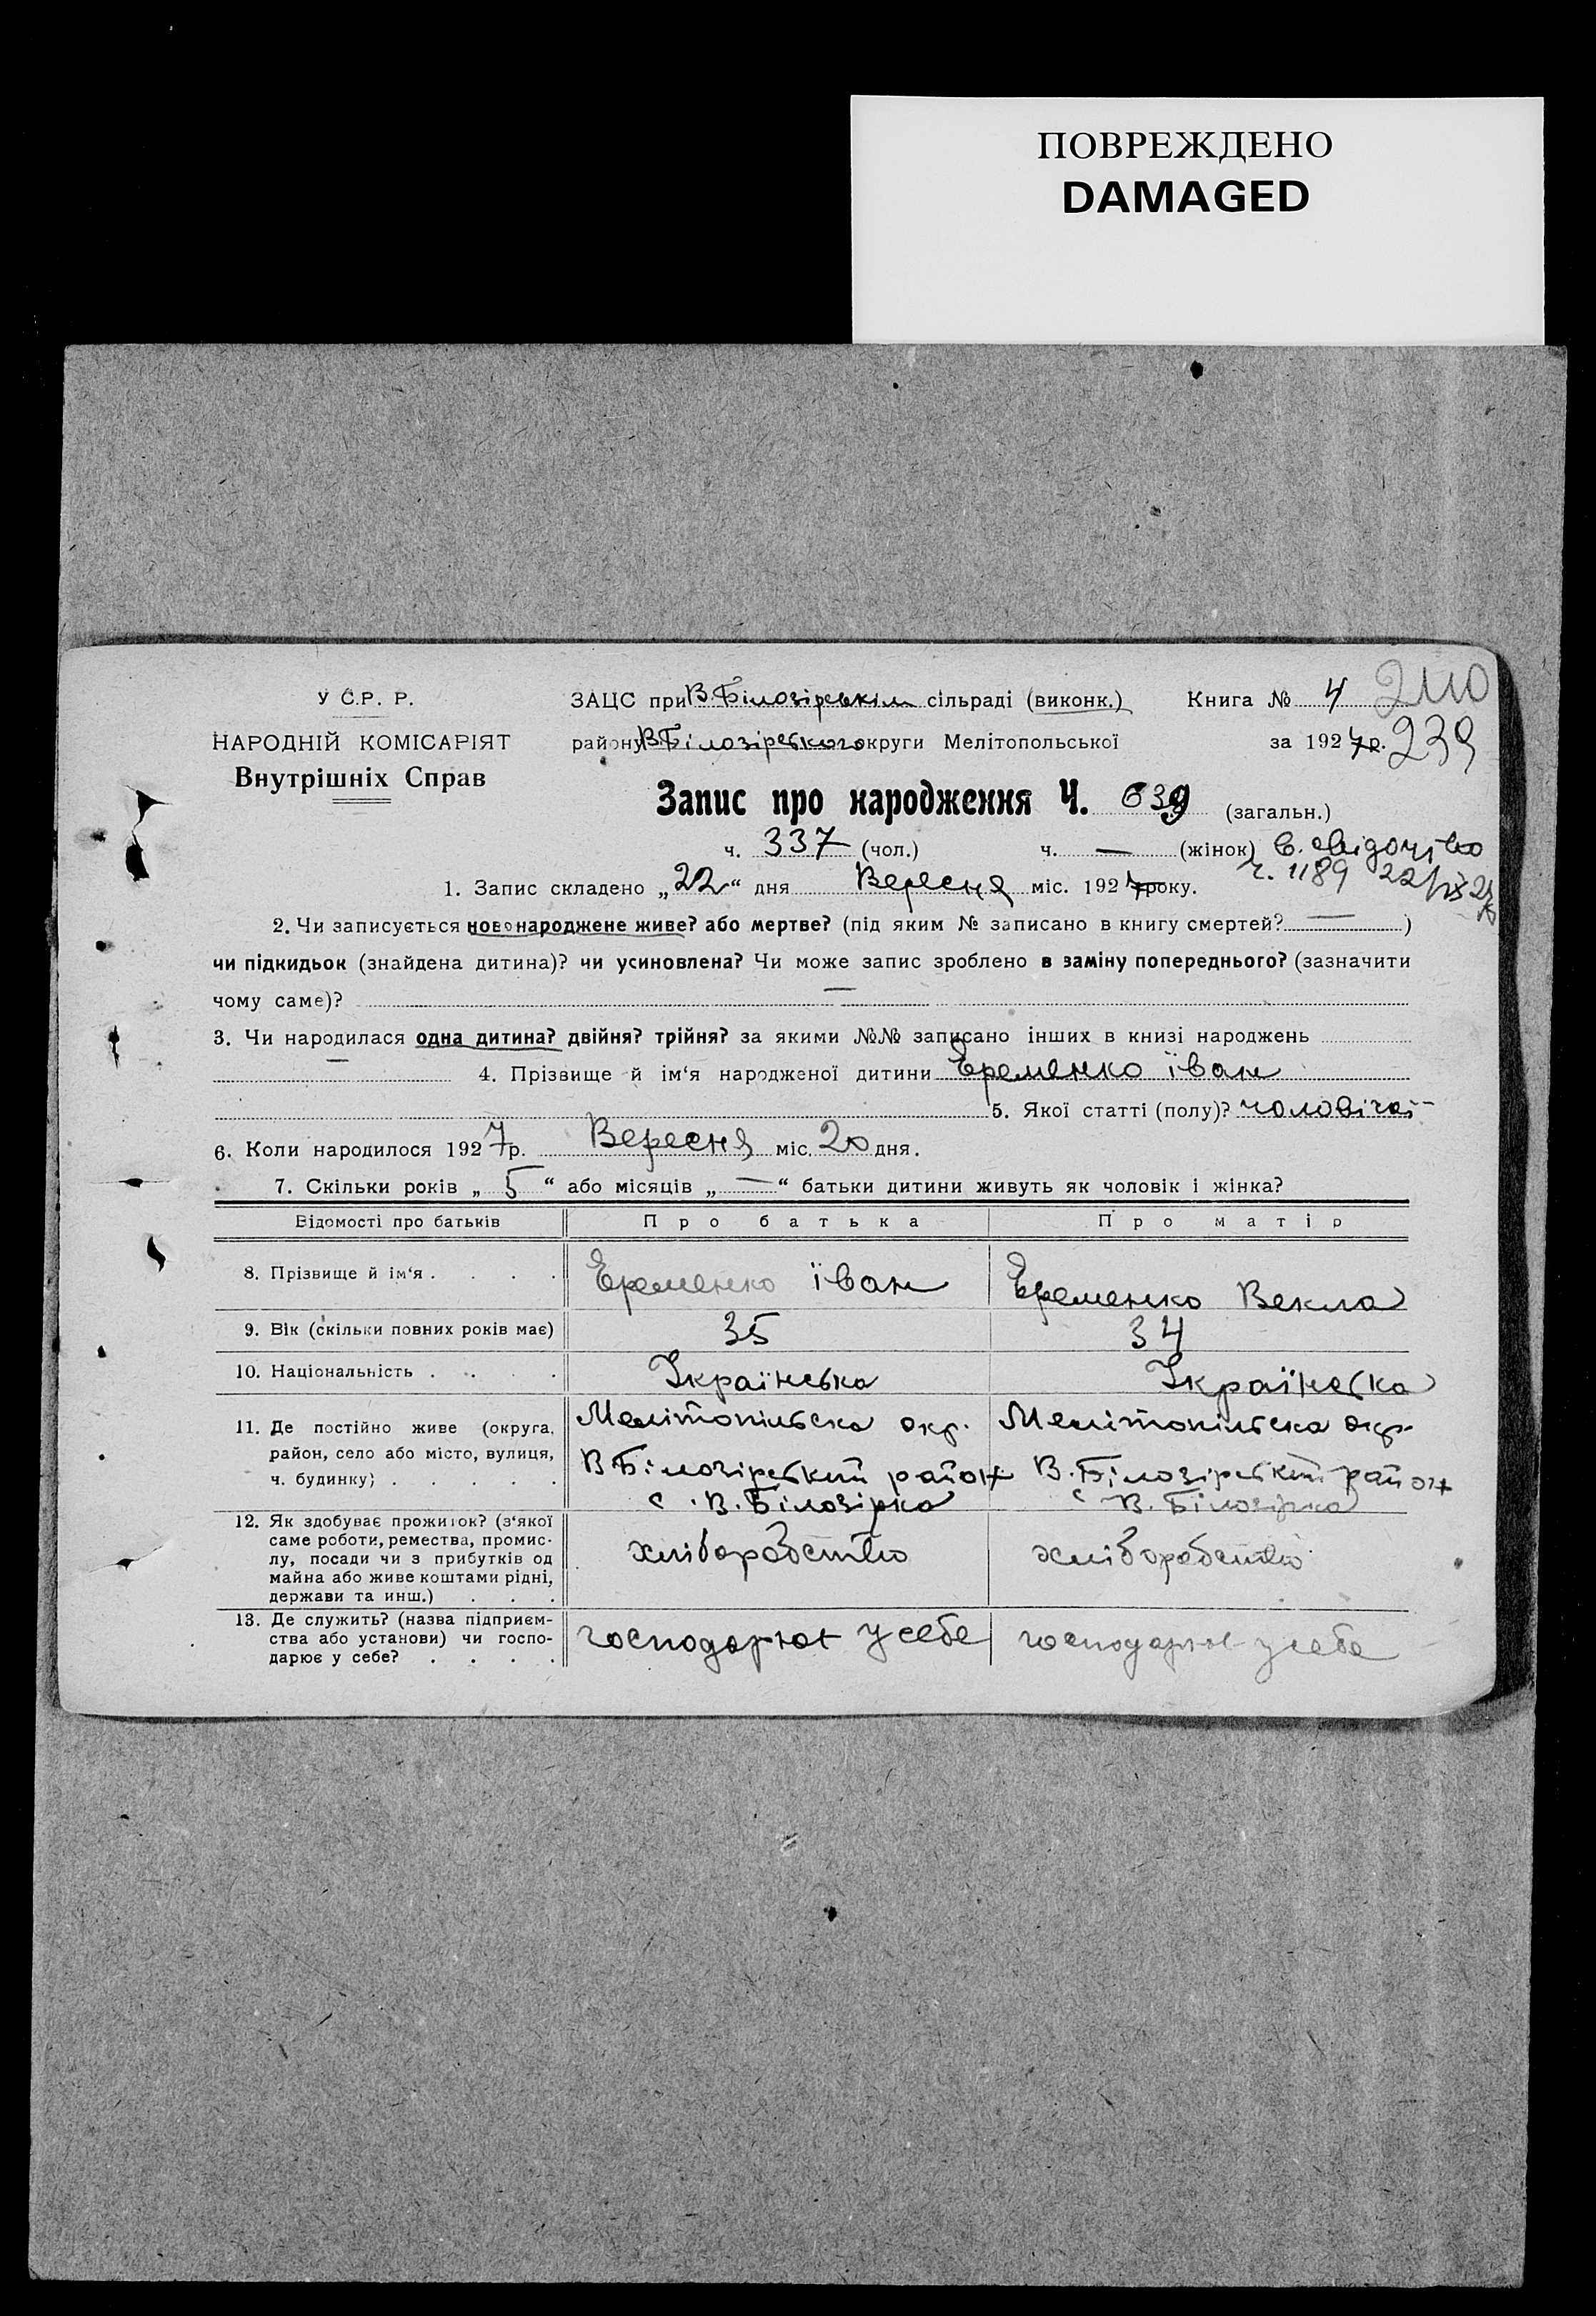 ПОВРЕЖДЕНО
DAMAGED
У С.Р. Р.
НАРОДНІЙ КОМІСАРІЯТ
Внутрішніх Справ
ЗАЦС при В.Білозірськім сільраді (виконк.)
району В.Білозірського округи Мелітопольської
Книга № 4
2110
за 1927 р.
239
Запис про народження Ч. 639 (загальн.)
ч. 337 (чол.) ч. — (жінок) В. свідоцтво
ч. 1189 22/IX 27
1. Запис складено „22“ дня Вересня міс. 1927 року.
2. Чи записується новонароджене живе? або мертве? (під яким № записано в книгу смертей? — )
чи підкидьок (знайдена дитина)? чи усиновлена? Чи може запис зроблено в заміну попереднього? (зазначити
чому саме)? —
3. Чи народилася одна дитина? двійня? трійня? за якими №№ записано інших в книзі народжень
— 4. Прізвище й ім‘я народженої дитини Єременко Їван
5. Якої статті (полу)? чоловічої
6. Коли народилося 1927 р. Вересня міс. 20 дня.
7. Скільки років „ 5 “ або місяців „ — “ батьки дитини живуть як чоловік і жінка?
Відомості про батьків Про батька Про матір
8. Прізвище й ім‘я . . . . Єременко Їван Єременко Векла
9. Вік (скільки повних років має) 35 34
10. Національність . . . . Українська Українська
11. Де постійно живе (округа, район, село або місто, вулиця, ч. будинку) . . . . .
Мелітопільска окр.
В Білозірський район
с. В. Білозірка
Мелітопільска окр.
В. Білозірський район
с В. Білозірка
12. Як здобуває прожиток? (з‘якої
саме роботи, ремества, промис-
лу, посади чи з прибутків од
майна або живе коштами рідні,
держави та инш.) . . .
хліборобство
хліборобство
13. Де служить? (назва підприєм-
ства або установи) чи госпо-
дарює у себе? . . . .
господарює у себе
господарює у себе